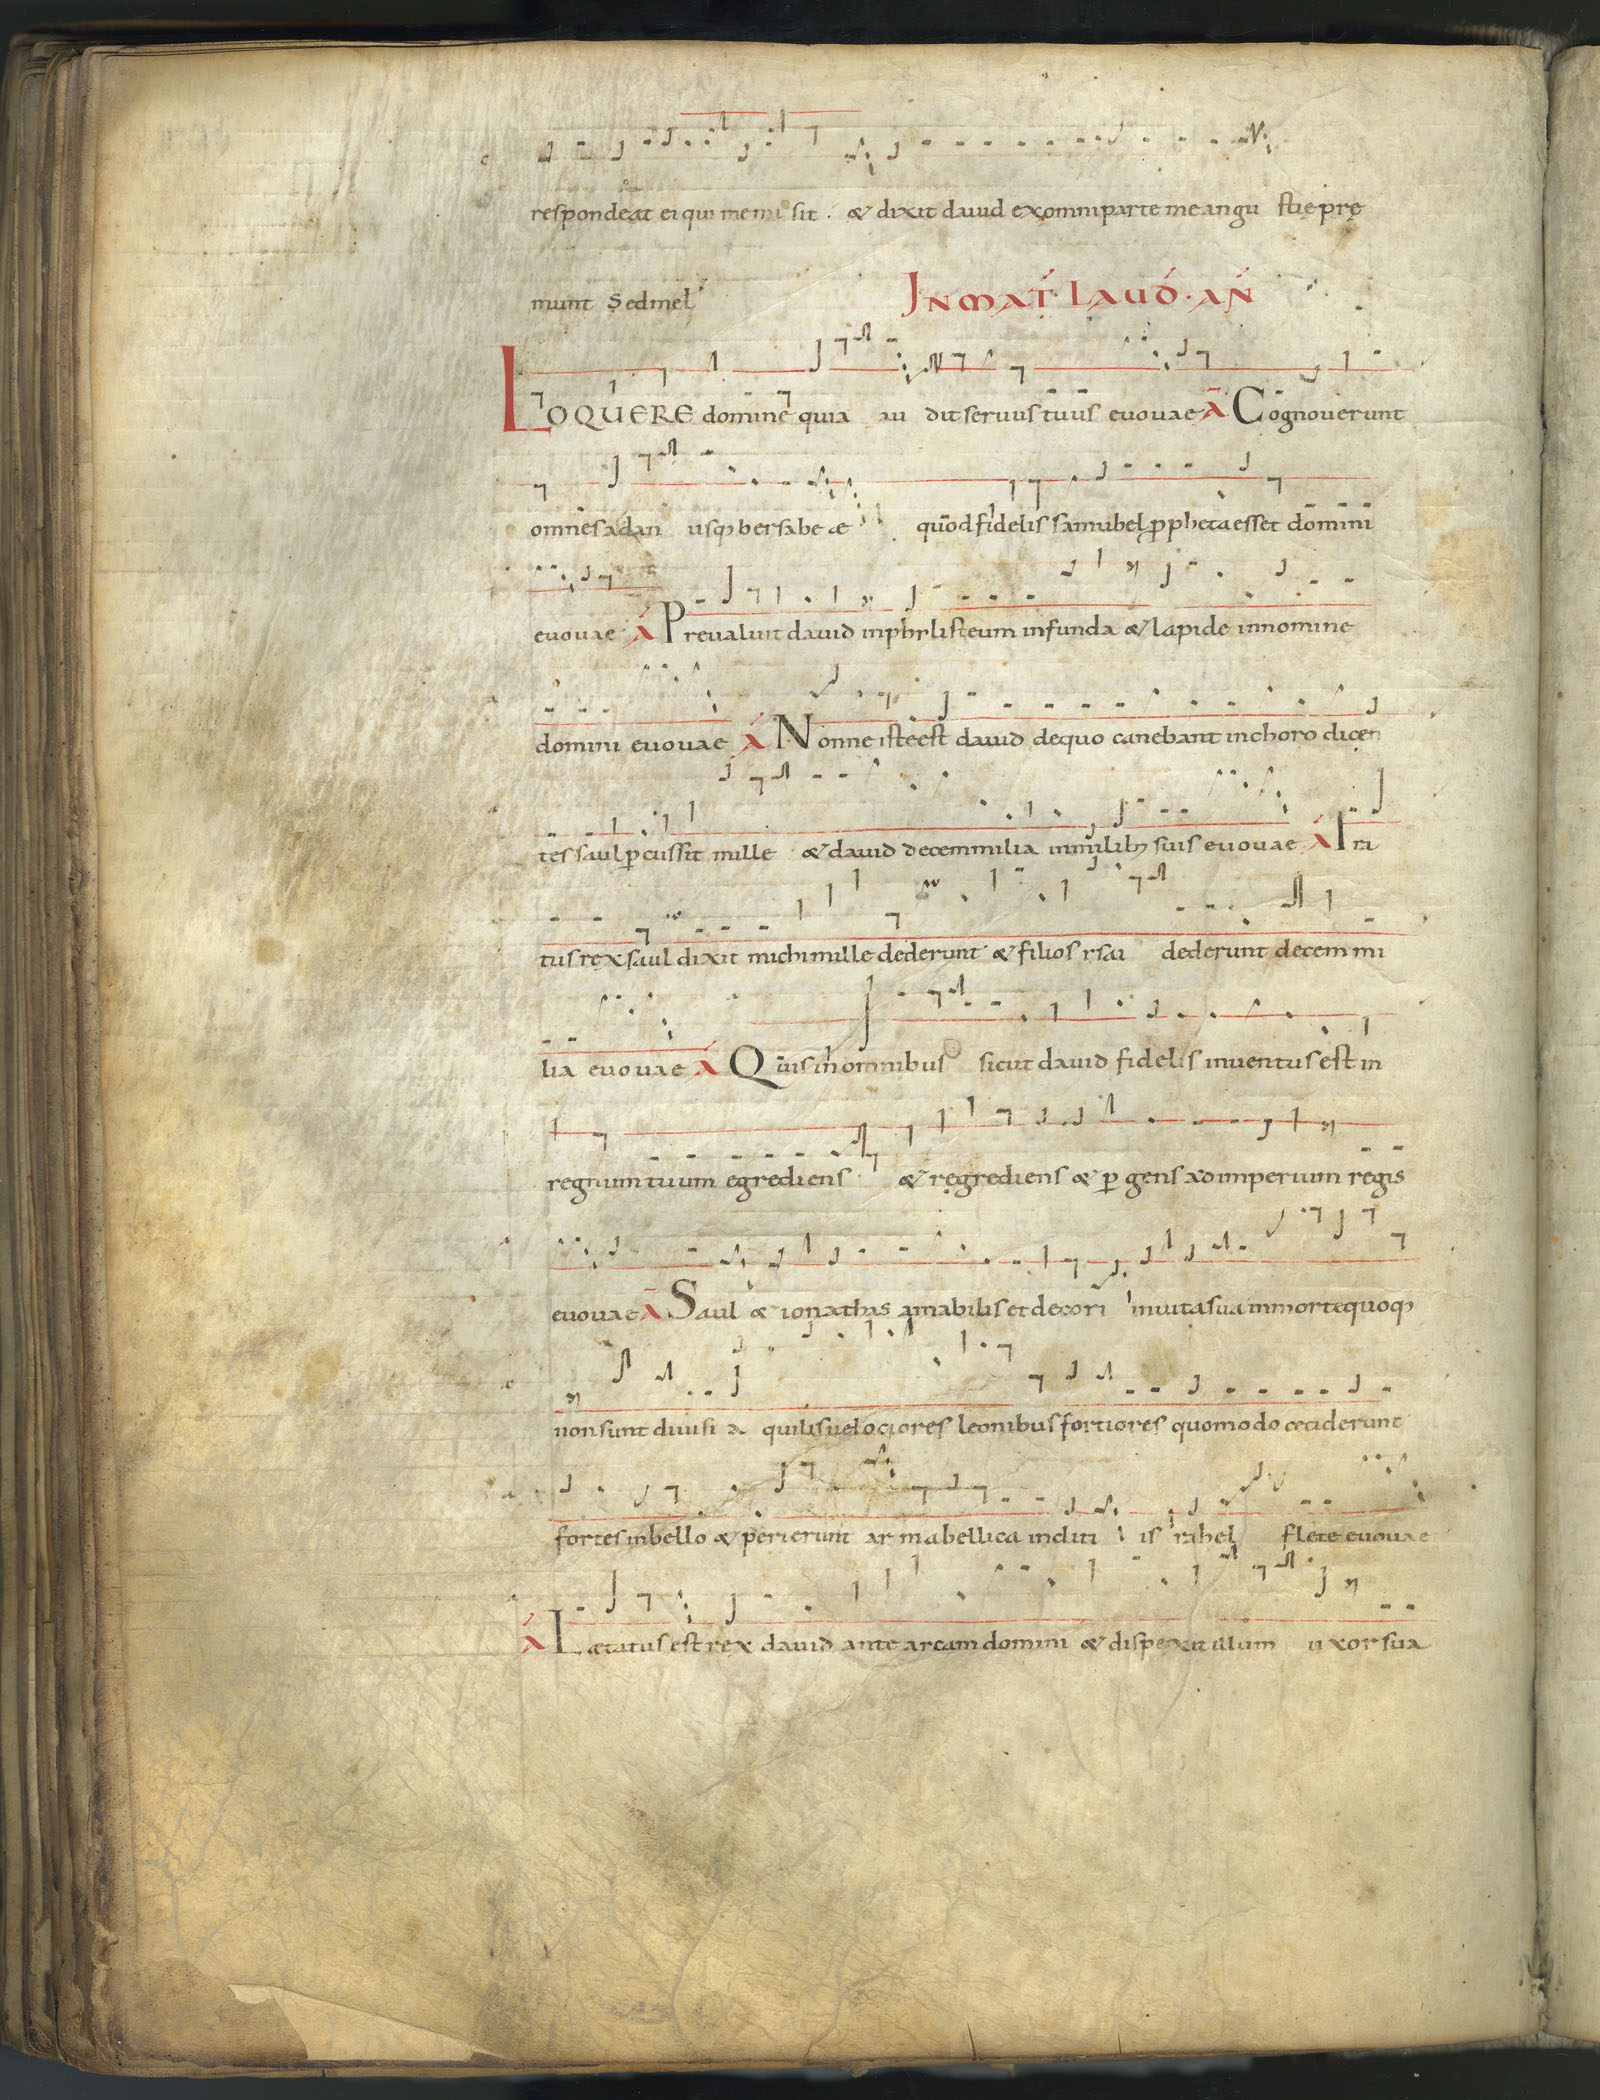 respondeat ei qui me mi sit . & dixit dauid exomniparte me angu stię prę
munt Sed mel
IN MAT̄ . LAUD̄ . AÑ
LOQUERE domine quia au dit seruus tuus euouae A Cognouerunt
omnes a dan usq; bersabe æ quod fidelis samuhel ꝓpheta esset domini
euouae A Preualuit dauid inphylisteum infunda & lapide innomine
domini euouae A Nonne iste est dauid dequo canebant inchoro dicen
tes saul ꝑcussit mille & dauid decem milia inmilib; suis euouae A Ira
tus rex saul dixit michi mille dederunt & filio isai dederunt decem mi
lia euouae A Quis inomnibus sicut dauid fidelis inuentus est in
regnum tuum egrediens & regrediens & ꝑ gens ad imperium regis
euouae A Saul & ionathas amabilis et decori inuita sua inmorte quoq;
non sunt diuisi a quilis uelociores leonibus fortiores quomodo ceciderunt
fortes inbello & perierunt ar ma bellica incliti is rahel flete euouae
A Lætatus est rex dauid ante arcam domini & dispexit illum uxor sua